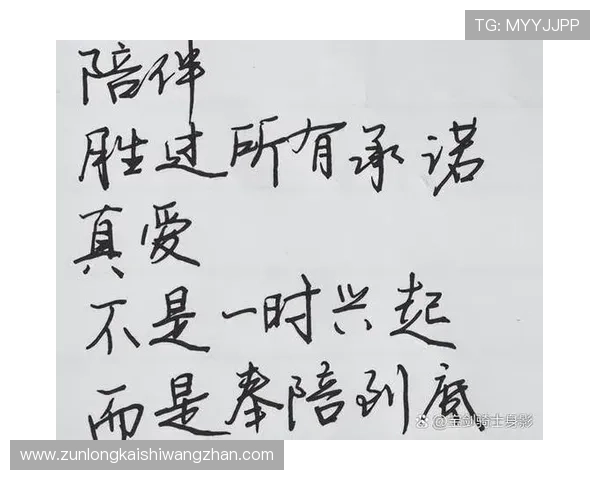 TG: MYYJJPP
陪伴
胜过所有承诺
真爱
不是一时兴起
而是奉陪到底
@宝剑骑士身影
www.zunlongkaishiwangzhan.com